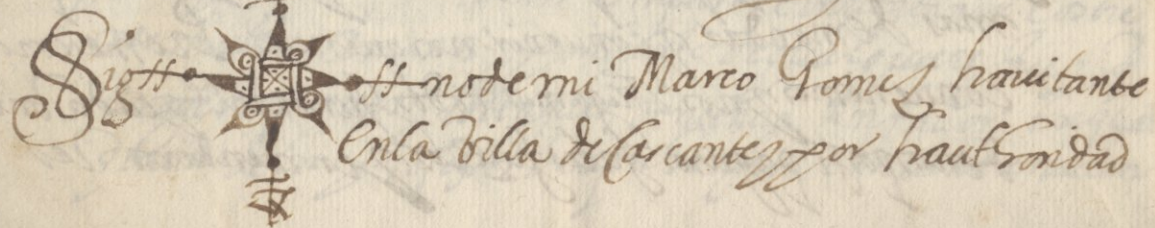 Sig++ ++no de mi Marco Gomez havitante
En la Villa de Cascante y por hauthoridad